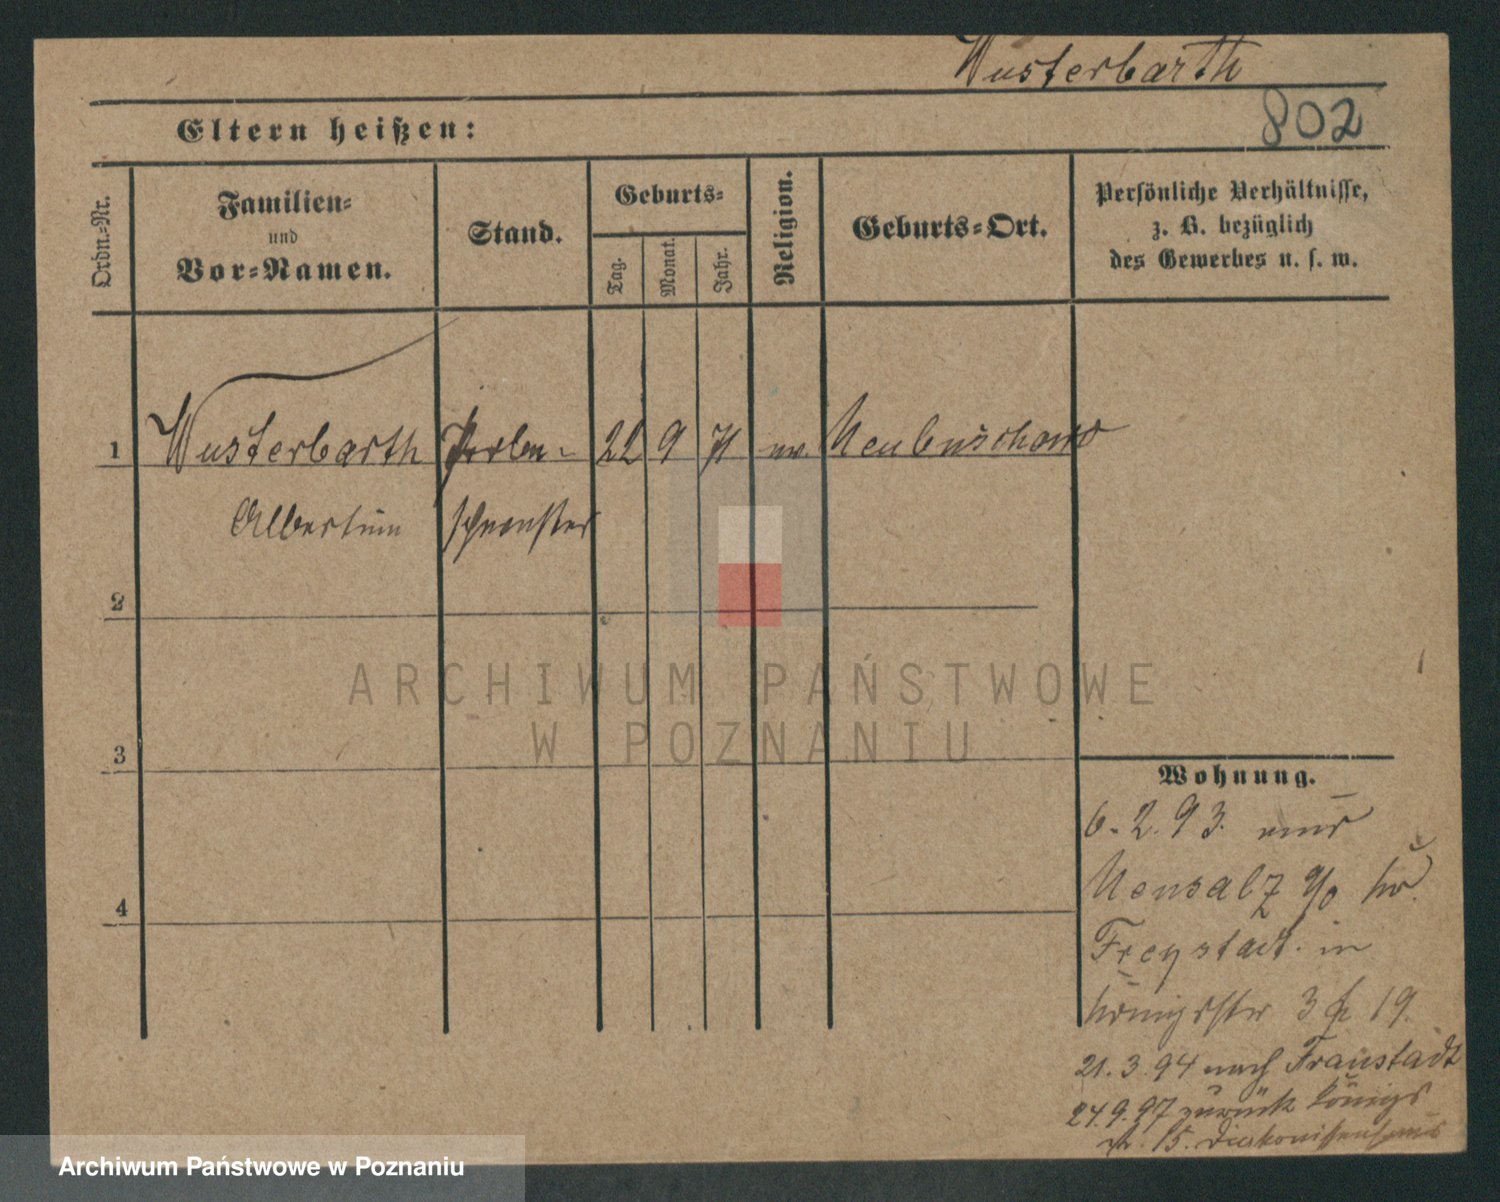 Wusterbarth
802
Eltern heißen:
Ordn.-Nr.
Familien-
und
Vor-Namen.
Stand.
Geburts-
Tag.
Monat.
Jahr.
Religion.
Geburts-Ort.
Persönliche Verhältnisse,
z. B. bezüglich
des Gewerbes u. s. w.
1 Wusterbarth 22 9 71 ev.
Albertine schwester
2
ARCHIWUM PAŃSTWOWE
W POZNANIU
3
Wohnung.
6. 2. 93. aus
Neusalz a/o kr.
Freystadt. in
Königsstr 3 19.
21. 3. 94 nach Fraustadt
24. 9. 97 zurück Königs
str. 15. Diakonissenhaus
4
Archiwum Państwowe w Poznaniu